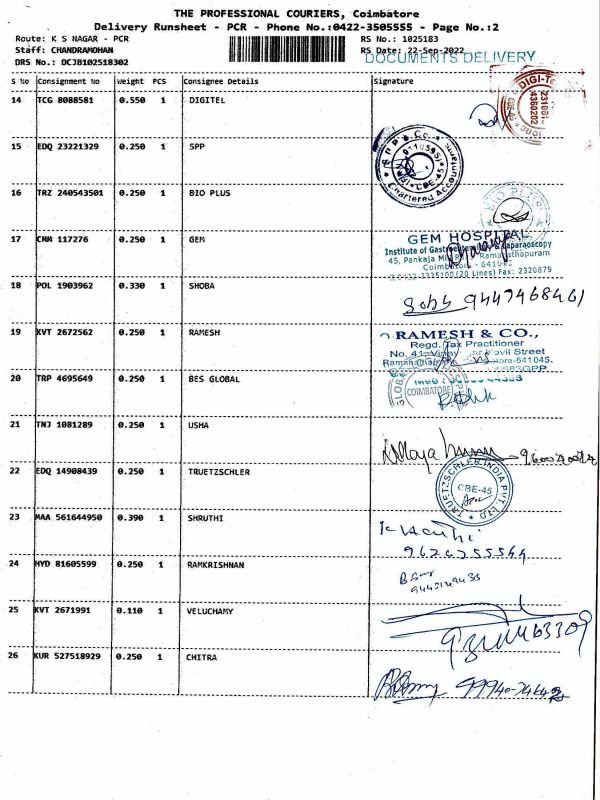 THE PROFESSIONAL COURIERS, Coimbatore
Delivery Runsheet - PCR - Phone No.:0422-3505555 - Page No.:2
Route: K S NAGAR - PCR
RS No.: 1025183
Staff: CHANDRAMOHAN
RS Date: 22-Sep-2022
DRS No.: DCJB102518302
DOCUMENTS DELIVERY
S No Consignment No Weight PCS Consignee Details Signature
14 TCG 8088581 0.550 1 DIGITEL
15 EDQ 23221329 0.250 1 SPP
Chartered Accountants
CBE-45
16 TRZ 240543501 0.250 1 BIO PLUS
BIO PLUS
17 CMM 117276 0.250 1 GEM
GEM HOSPITAL
Institute of
45, Pankaja Ramanathapuram
Coimbatore - 641045
(20 Lines) Fax: 2320879
18 POL 1903962 0.330 1 SHOBA
9447468461
19 KVT 2672562 0.250 1 RAMESH
RAMESH & CO.,
Regd. Tax Practitioner
No. 41, Kovil Street
-641045.
20 TRP 4695649 0.250 1 BES GLOBAL
COIMBATORE
21 TNJ 1081289 0.250 1 USHA
22 EDQ 14908439 0.250 1 TRUETZSCHLER
TRUETZSCHLER INDIA PVT. LTD
CBE-45
23 MAA 561644950 0.390 1 SHRUTHI
24 HYD 81605599 0.250 1 RAMKRISHNAN
25 KVT 2671991 0.110 1 VELUCHAMY
26 KUR 527518929 0.250 1 CHITRA